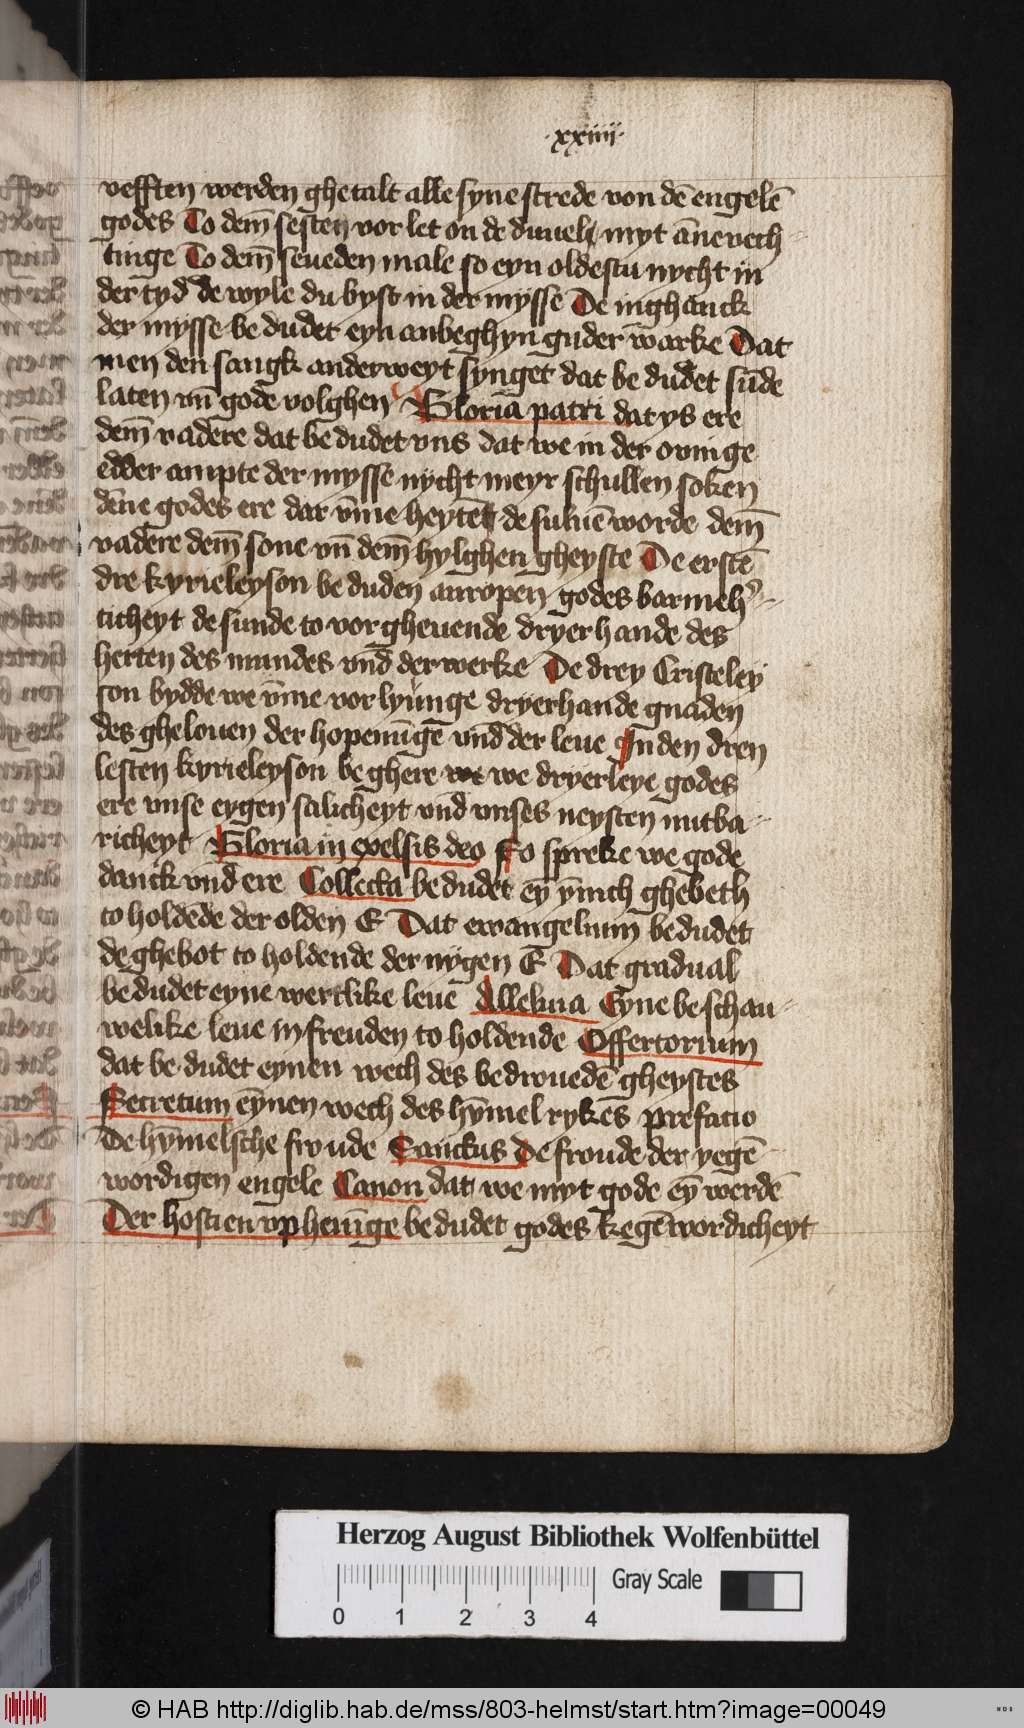 ·xxiiii·
vefften werden ghetalt alle syne strede von dē engelē
godes To dem̄ sesten vor let on de duuel myt ānevech
tinge To dem̄ seueden male so eyn oldestu nycht in
der tyd de wyle du byst in der mysse De inghanck
der mysse be dudet eyn anbeghyn guder warke Dat
men den sangk anderweyt synget dat be dudet sūde
laten vn̄ gode volghen Gloria patri dat ys ere
dem̄ vadere dat be dudet vns dat we in der ouinge
edder ampte der mysse nycht meyr schullen soken
dēne godes ere dar v̄me heytet de suluē worde dem̄
vadere dem̄ sone vn̄ dem̄ hylghen gheyste De erstē
dre kyrieleyson be duden anropen godes barmeh
ticheyt de sunde to vorgheuende dryerhande des
herten des mundes vnd der werke De drey Cristeley
son bydde we v̄me vor lyunge dryerhande gnaden
des ghelouen der hopenūge vnd der leue In den dren
lesten kyrieleyson be ghere we dryerleye godes
ere vnse eygen salicheyt vnd vnses neysten nutba
richeyt Gloria in exelsis deo So spreke we gode
danck vnd ere Collecta be dudet ey ynich ghebeth
to holdēde der olden E Dat ewangelium be dudet
de ghebot to holdende der nygen E Dat gradual
be dudet eyne wertlike leue Alleluia Eyne be schau
welike leue in freuden to holdende Offertorium
dat be dudet eynen wech des bedrouedē gheystes
Secretum eynen wech des hymel rykes prefacio
De hymelsche froude Sanctus De froude der yegē
wordigen engele Canon dat we myt gode ey werdē
Der hostien vp heuīge be dudet godes kegēwordicheyt
Herzog August Bibliothek Wolfenbüttel
Gray Scale
0 1 2 3 4
© HAB http://diglib.hab.de/mss/803-helmst/start.htm?image=00049